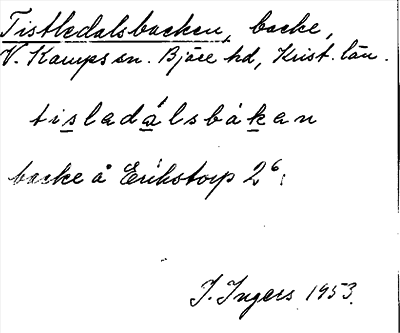 Tistledalsbacken, backe,
V. Karups sn. Bjäre hd, Krist. län.
tisladálsbàkan
backe å Erikstorp 2⁶.
I. Ingers 1953.